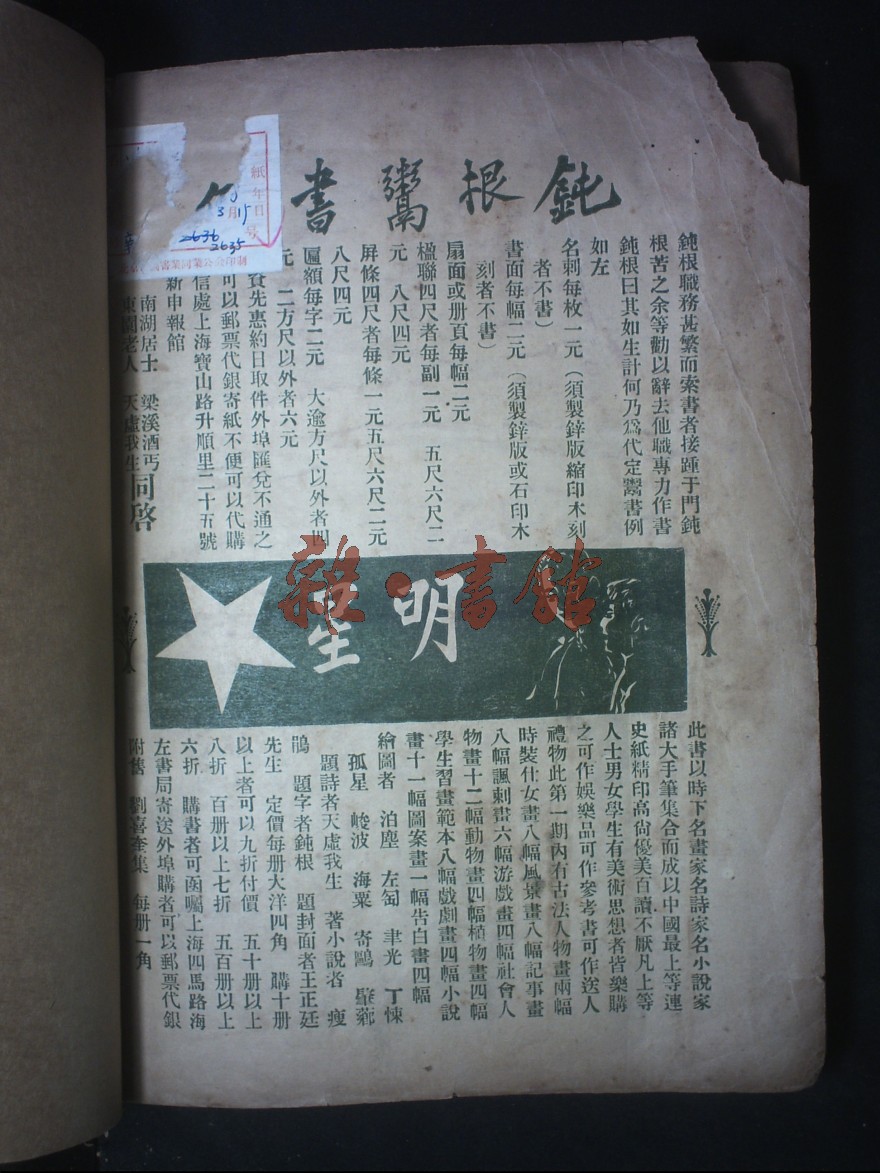 鈍根鬻書
鈍根職務甚繁而索書者接踵于門鈍
根苦之余等勸以辭去他職專力作書
鈍根曰其如生計何乃爲代定鬻書例
如左
名刺每枚一元（須製鋅版縮印木刻
者不書）
書面每幅二元（須製鋅版或石印木
刻者不書）
扇面或册頁每幅二元
楹聯四尺者每副一元　五尺六尺二
元　八尺四元
屏條四尺者每條一元五尺六尺二元
八尺四元
匾額每字二元　大逾方尺以外者四
元　二方尺以外者六元
資先惠約日取件外埠匯兌不通之
可以郵票代銀寄紙不便可以代購
信處上海寶山路升順里二十五號
新申報館
南湖居士　梁溪酒丐
東園老人　天虛我生　同啓
紙年月日號
3 15
2636
2635
書業同業公會印制
明星
雜·書館
此書以時下名畫家名詩家名小說家
諸大手筆集合而成以中國最上等連
史紙精印高尙優美百讀不厭凡上等
人士男女學生有美術思想者皆樂購
之可作娛樂品可作參考書可作送人
禮物此第一期內有古法人物畫兩幅
時裝仕女畫八幅風景畫八幅記事畫
八幅諷刺畫六幅游戲畫四幅社會人
物畫十二幅動物畫四幅植物畫四幅
學生習畫範本八幅戲劇畫四幅小說
畫十一幅圖案畫一幅告白畫四幅
繪圖者　泊塵　左匋　聿光　丁悚
孤星　峻波　海粟　寄鷗
題詩者天虛我生　著小說者　瘦
鵑　題字者鈍根　題封面者王正廷
先生　定價每册大洋四角　購十册
以上者可以九折付價　五十册以上
八折　百册以上七折　五百册以上
六折　購書者可函囑上海四馬路海
左書局寄送外埠購者可以郵票代銀
附售　劉喜奎集　每册一角